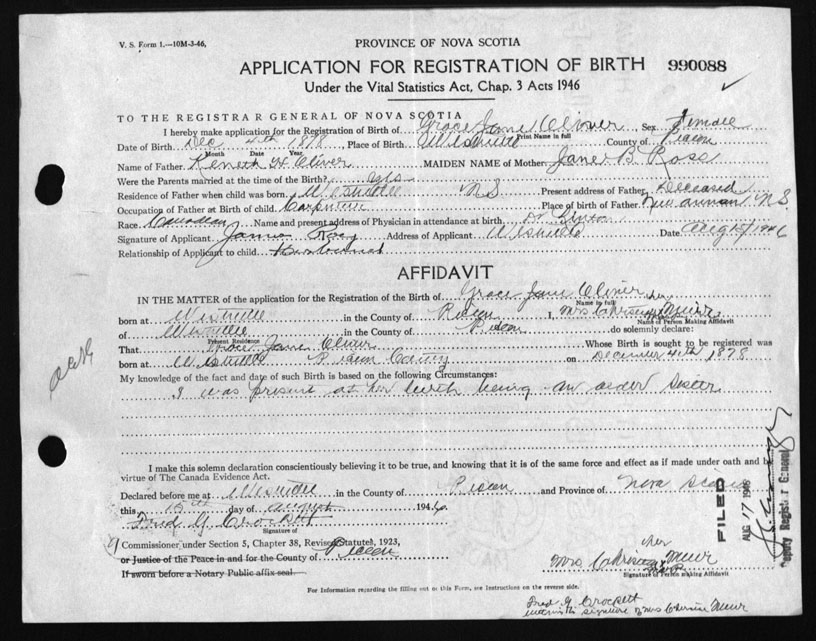 V. S. Form 1.—10M-3-46,
PROVINCE OF NOVA SCOTIA
APPLICATION FOR REGISTRATION OF BIRTH 990088
Under the Vital Statistics Act, Chap. 3 Acts 1946
TO THE REGISTRAR GENERAL OF NOVA SCOTIA
I hereby make application for the Registration of Birth of Grace Jane Oliver Sex Female
Print Name in full
Date of Birth Dec 4th 1878 Place of Birth Westville County of Pictou
Month Date Year
Name of Father Kenneth Oliver MAIDEN NAME of Mother Jane B. Ross
Were the Parents married at the time of the Birth? yes
Residence of Father when child was born Westville NS Present address of Father Deceased
Occupation of Father at Birth of child Carpenter Place of birth of Father New Annan N S.
Race Canadian Name and present address of Physician in attendance at birth Dr
Signature of Applicant James Address of Applicant Westville Date Aug 15/1946
Relationship of Applicant to child
AFFIDAVIT
IN THE MATTER of the application for the Registration of the Birth of Grace Jane Oliver
Name in full
born at Westville in the County of Pictou I, Mrs Muir
Name of Person Making Affidavit
of Westville in the County of Pictou do solemnly declare:
Present Residence
That Grace Jane Oliver Whose Birth is sought to be registered was
born at Westville Pictou County on December 4th 1878
My knowledge of the fact and date of such Birth is based on the following Circumstances:
I was present at her birth being an older sister
I make this solemn declaration conscientiously believing it to be true, and knowing that it is of the same force and effect as if made under oath and in
virtue of The Canada Evidence Act.
Declared before me at Westville in the County of Pictou and Province of Nova Scotia
this 15th day of August 1946
Fred G Crockett
Signature of
A Commissioner under Section 5, Chapter 38, Revised Statutes, 1923,
or Justice of the Peace in and for the County of Pictou
If sworn before a Notary Public affix seal
her
Mrs Muir
Signature of Person making Affidavit
FILED
AUG 17 1946
Deputy Registrar General
For Information regarding the filling out of this Form, see Instructions on the reverse side.
Fred G Crockett
witness to signature of Mrs Muir